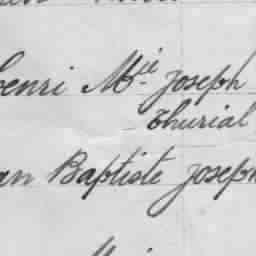 henri Mie Joseph
Thurial
an Baptiste Joseph